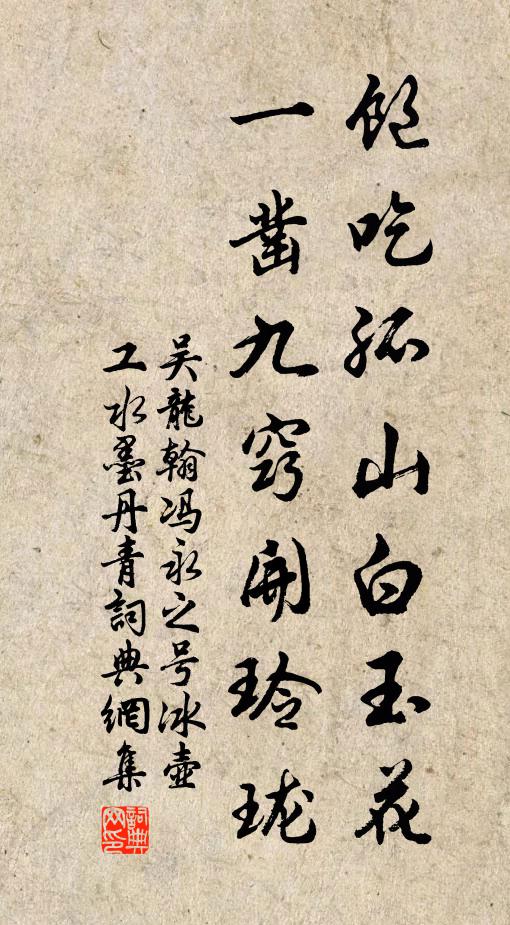 飽吃孤山白玉花
一凿九窍開玲珑
吴龍翰冯永之号冰壶
工水墨丹青詞典網集
詞典网印